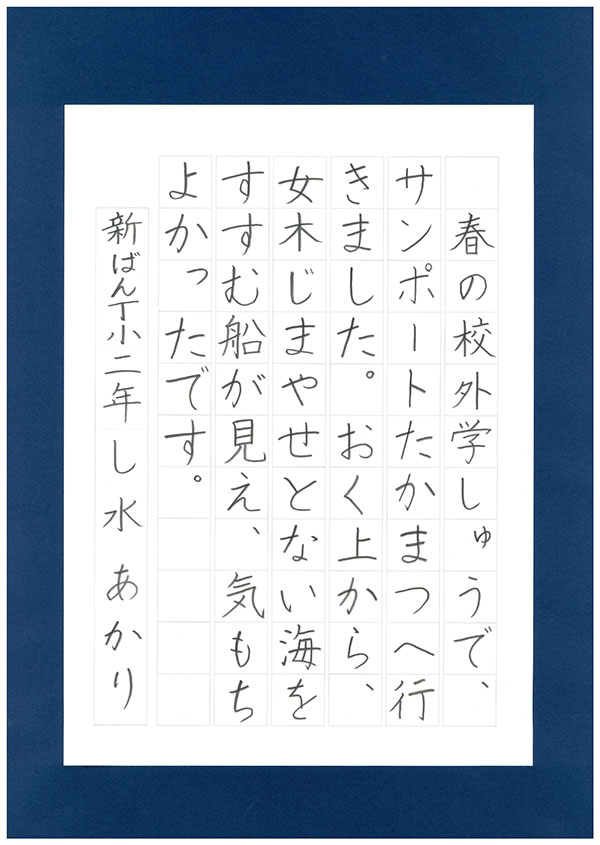 春の校外学しゅうで、
サンポートたかまつへ行
きました。おく上から、
女木じまやせとない海を
すすむ船が見え、気もち
よかったです。
新ばん丁小二年 し水 あかり